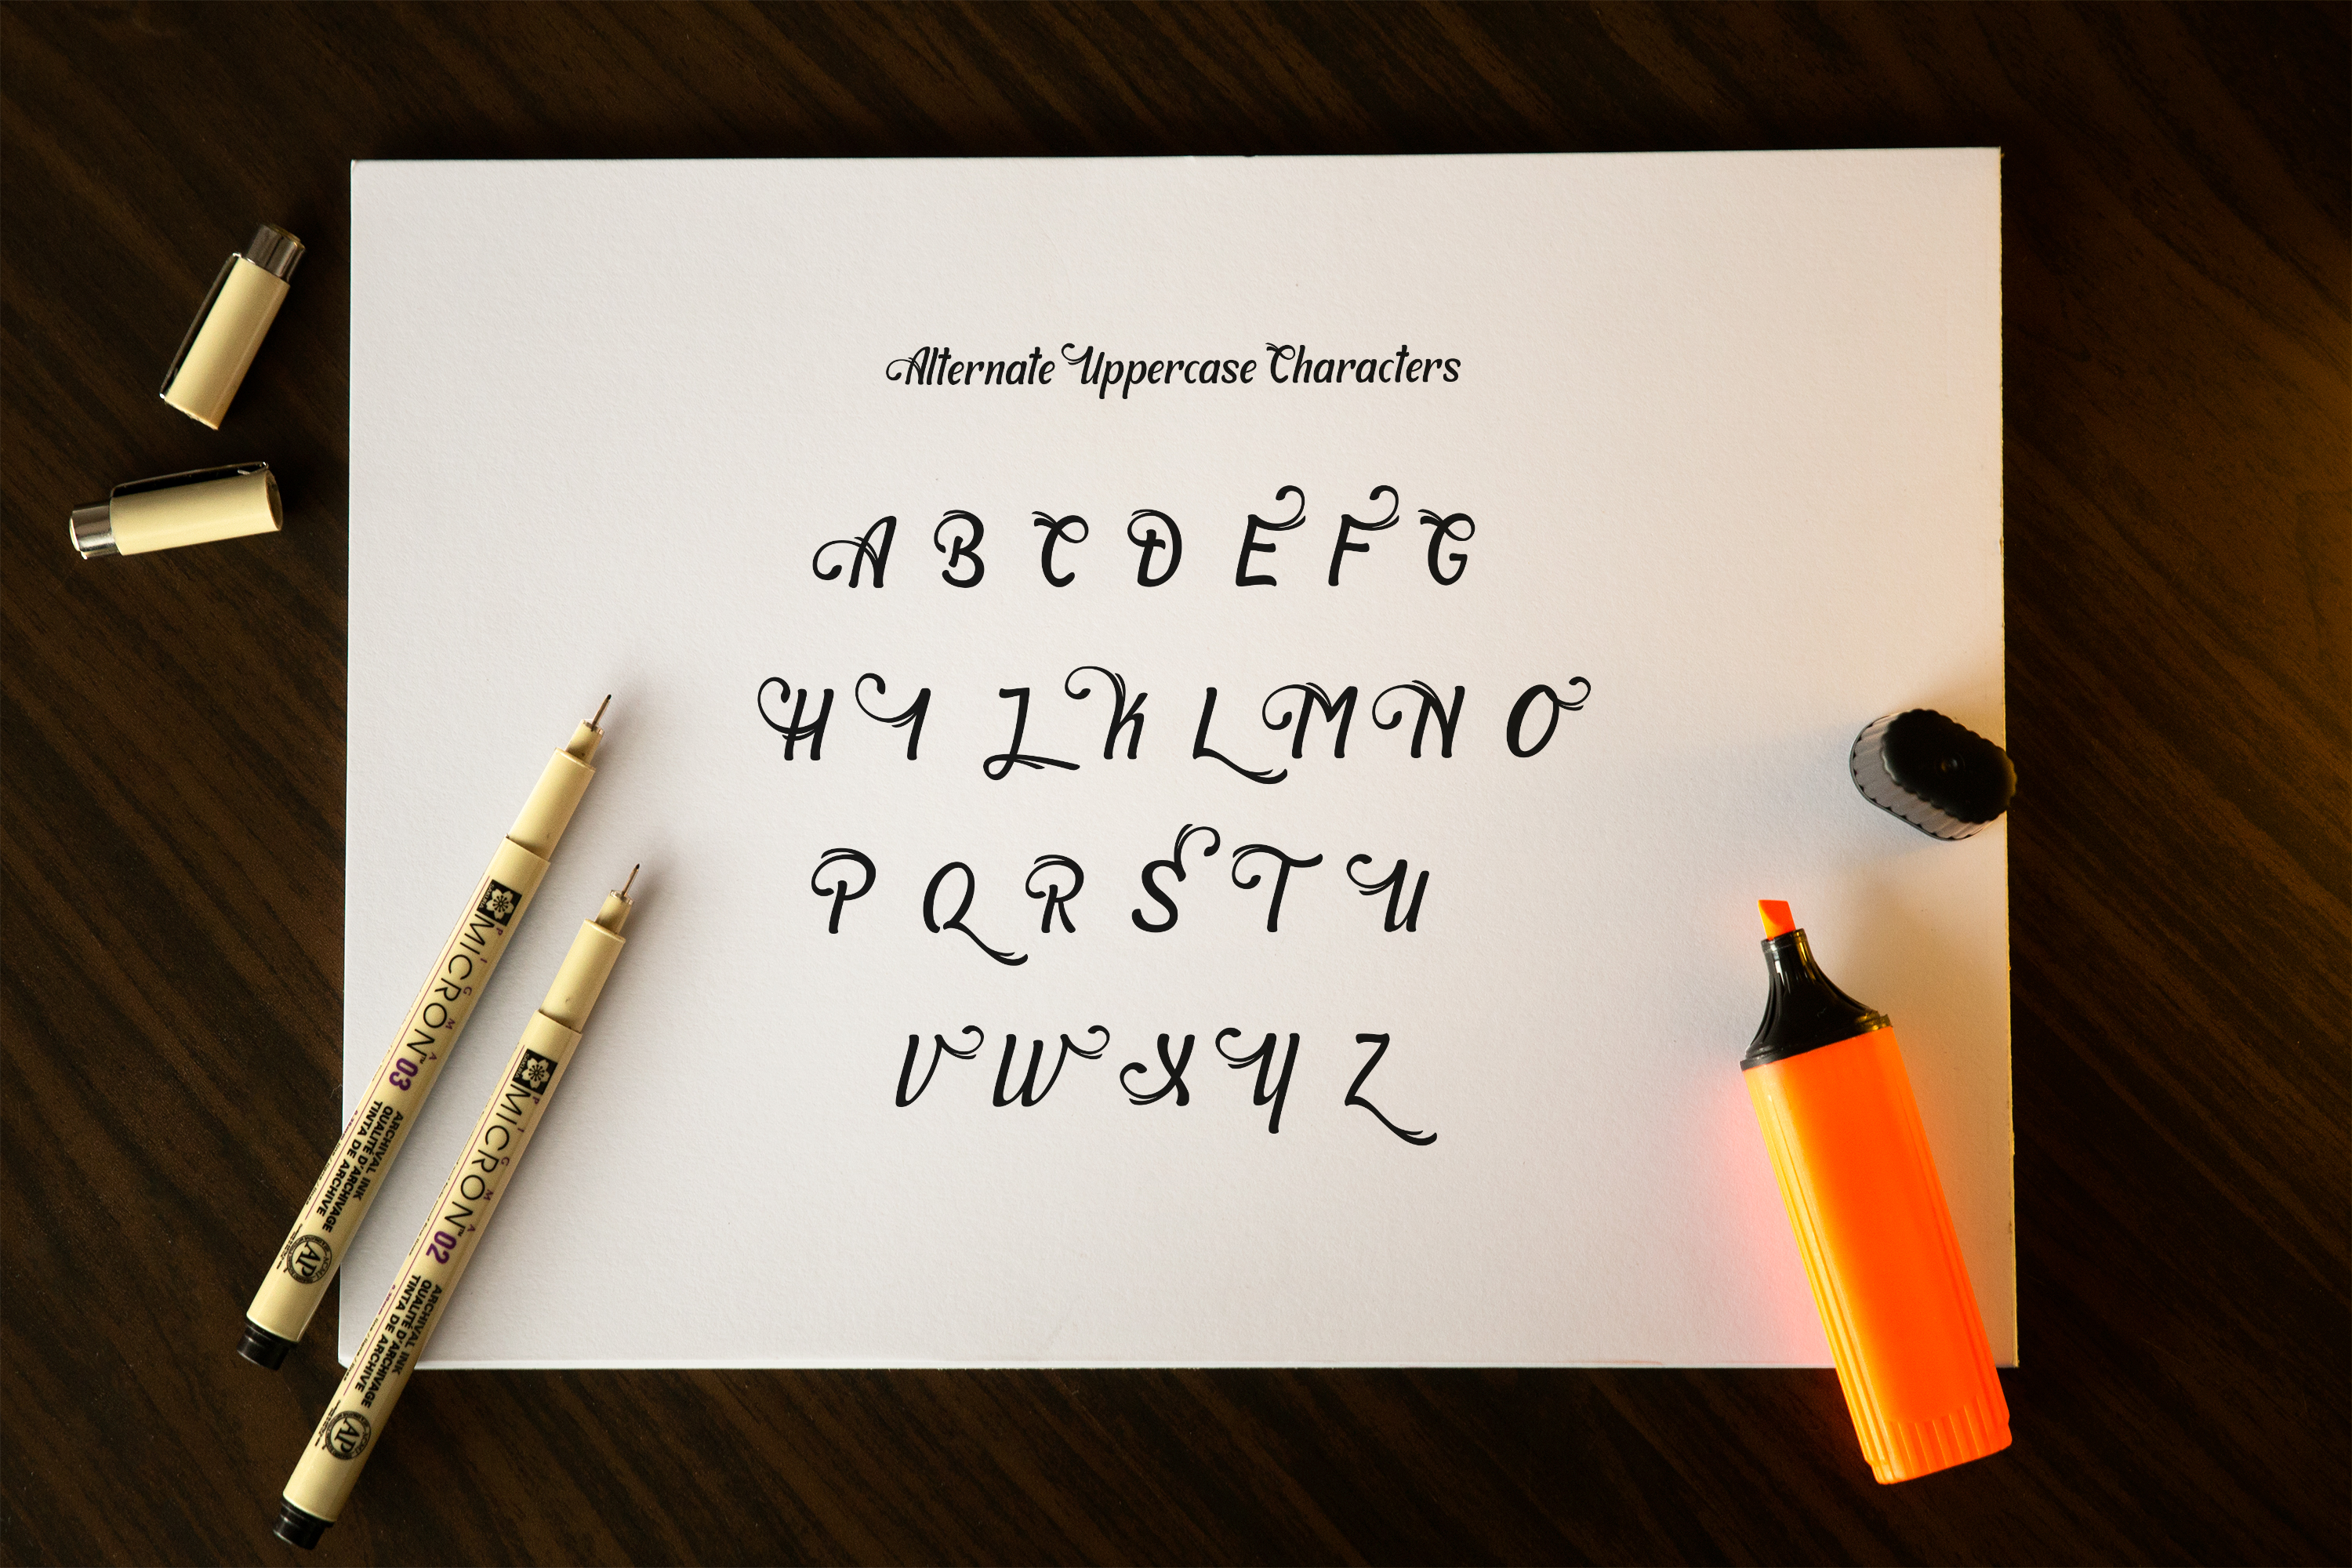 Alternate Uppercase Characters
A B C D E F G
H I J K L M N O
P Q R S T U
V W X Y Z
PIGMA
MICRON 03
ARCHIVAL INK
QUALITÉ D'ARCHIVAGE
TINTA DE ARCHIVE
AP
PIGMA
MICRON 02
ARCHIVAL INK
QUALITÉ D'ARCHIVAGE
TINTA DE ARCHIVE
AP